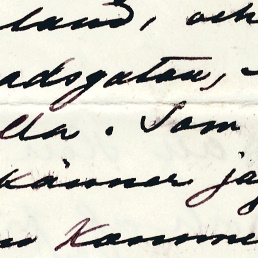 land, och
adsgatan,
lla. Som
känner ja
Komme